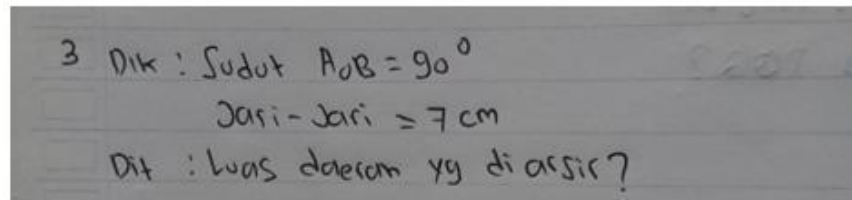 3 Dik : Sudut AOB = 90°
Jari-Jari = 7 cm
Dit : Luas daeram yg di arsir?